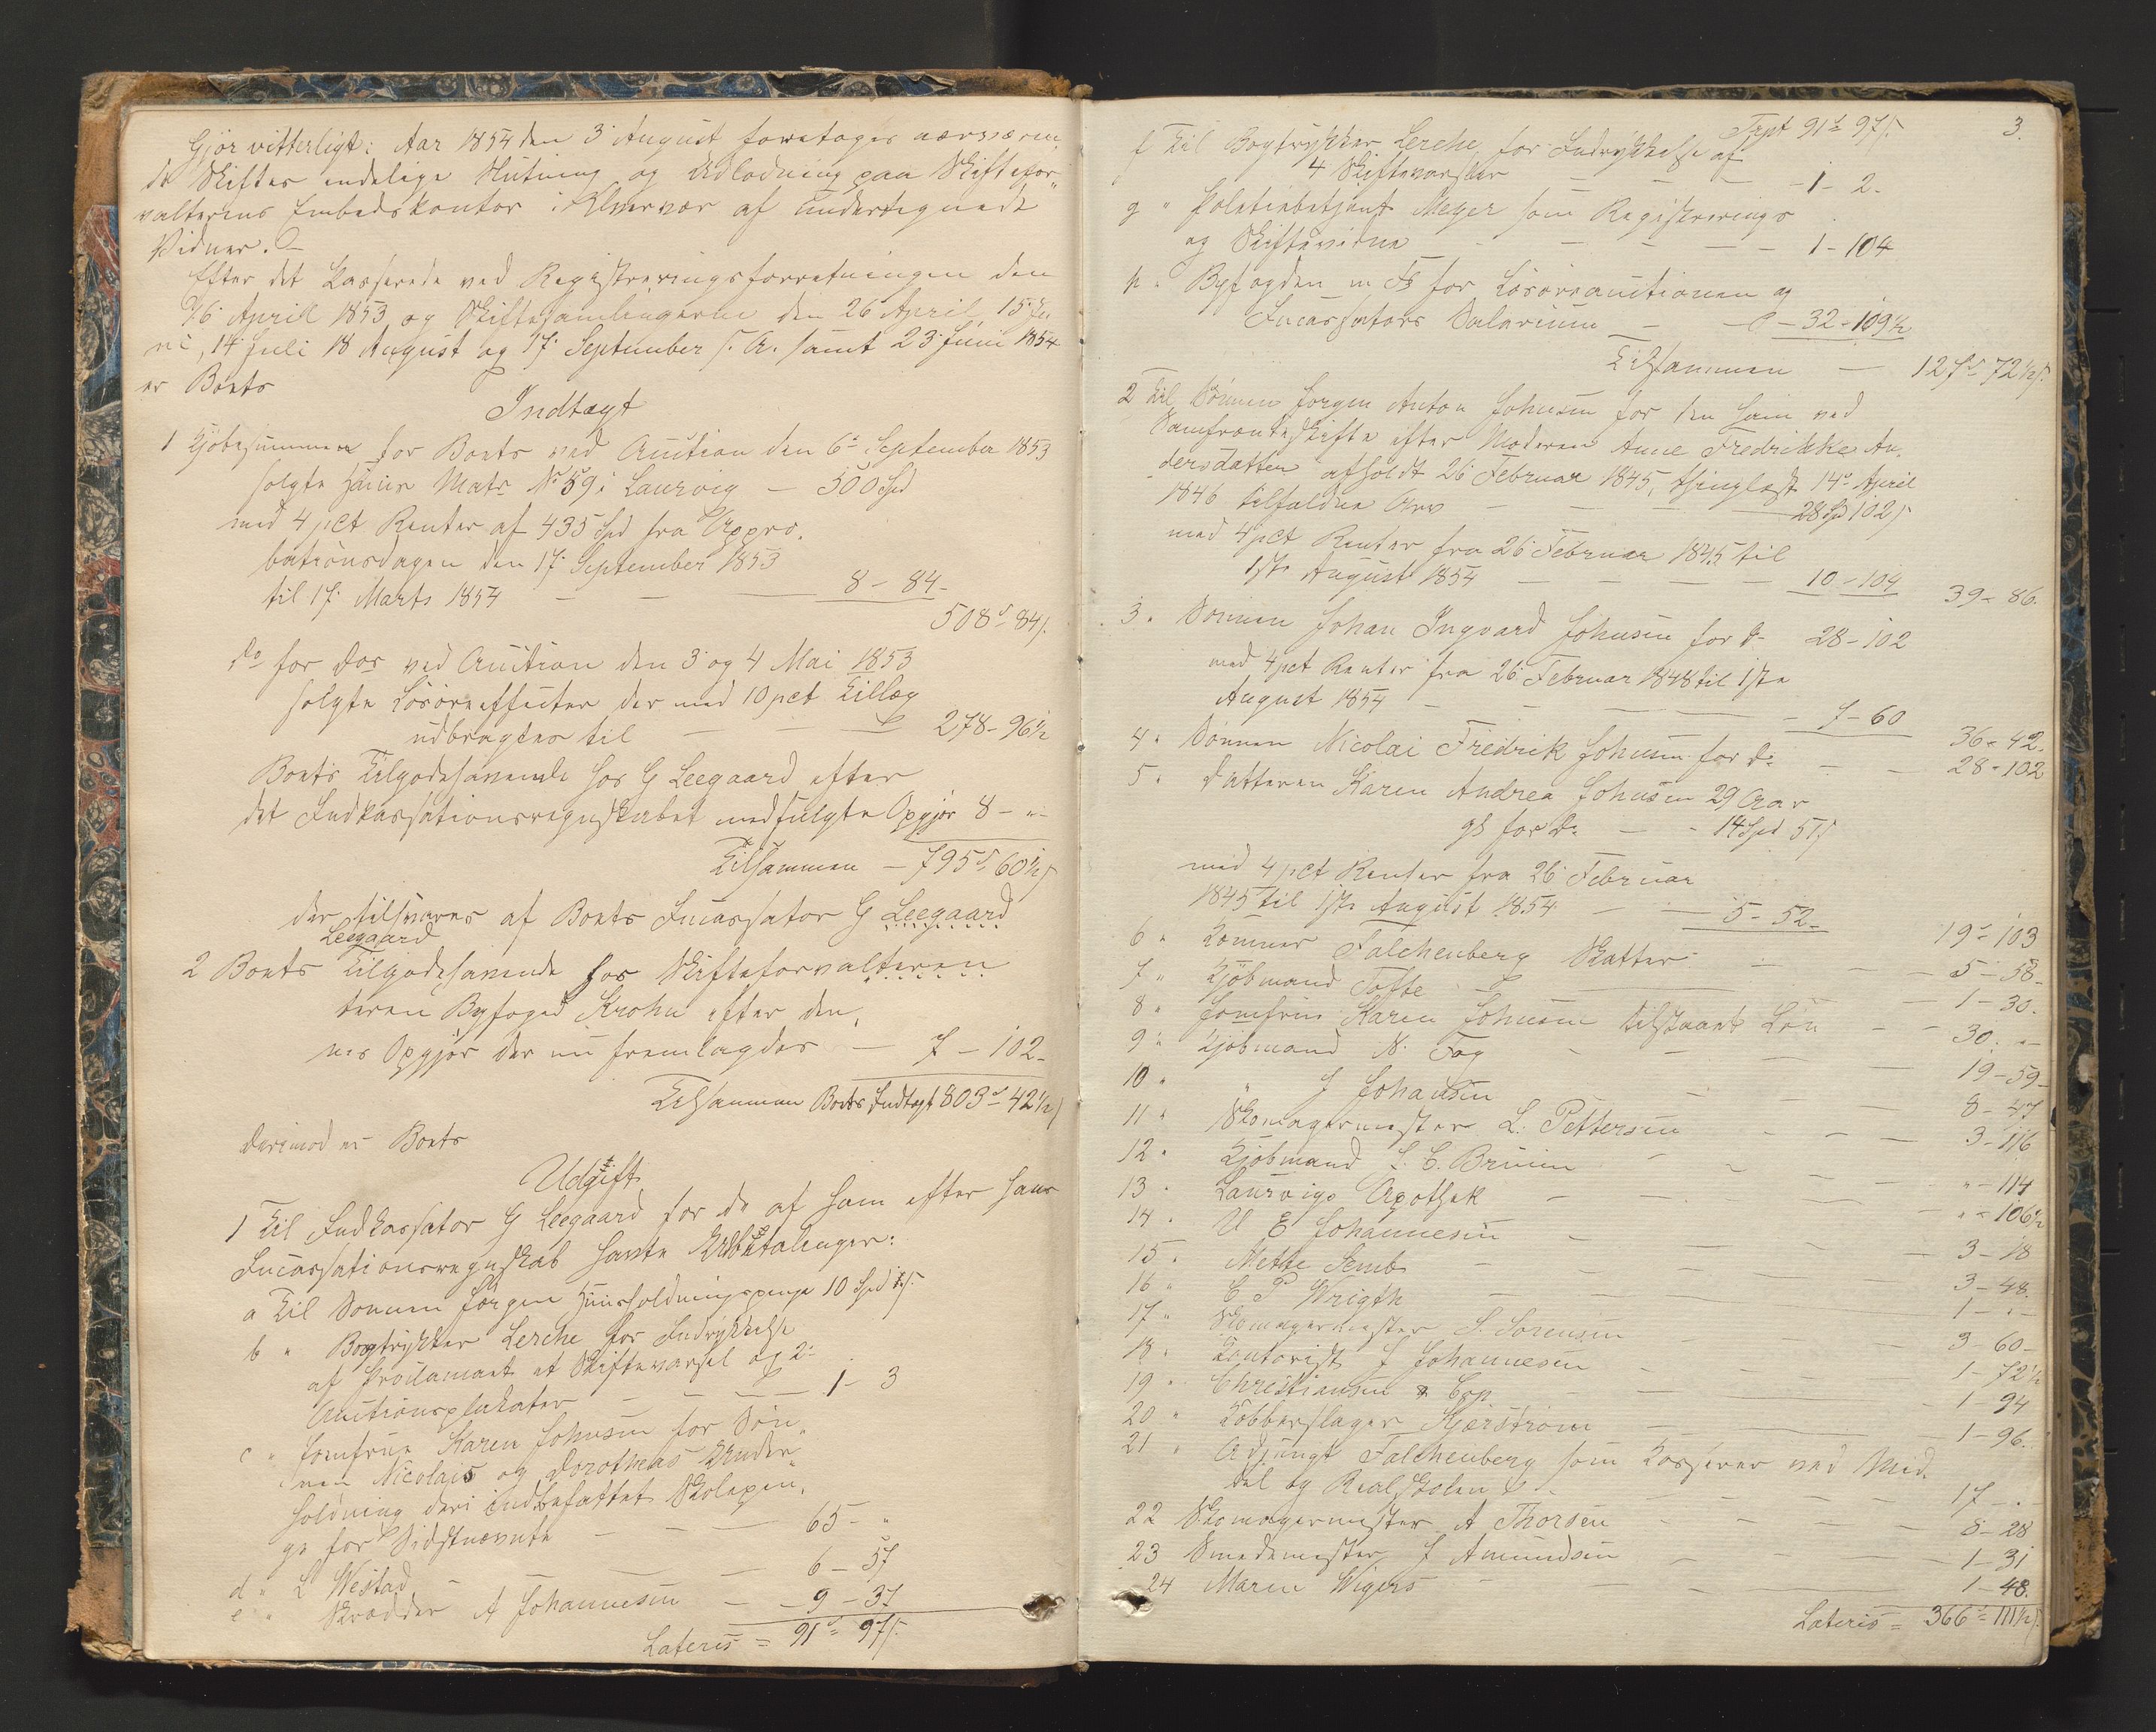 Gjør vitterligt: Aar 1854 den 3 August foretoges nærværen,
de Skiftes endelige Slutning og Udlodning paa Skiftefor„
valterens Embedskontor i Overvær af undertegnede
Vidner. –
Efter det Passerede ved Registreringsforretningen den
26 April 1853 og Skiftesamlingerne den 26 April, 15 Ju
ni, 14 Juli 18 August og 17 September s. A. samt 23 Juni 1854
er Boets
Indtægt
1 Kjøbesummen for Boets ved Auction den 6te September 1853
solgte Huus Matr No 59 i Laurvig — 500 Spd
med 4 pCt Renter af 435 Spd fra Appro,
bationsdagen den 17 September 1853
til 17 Marts 1854 — — 8 – 84 –
508 – 84 s.
do for dos ved Auction den 3 og 4 Mai 1853
solgte Løsøreeffecter der med 10 pct Tillæg
udbragtes til — — 278 – 96½
Boets Tilgodehavende hos G Leegaard efter
det Indkassationsregnskabet medfulgte Opgjør 8 – „ –
Tilsammen — 795 – 60½ s
der tilsvares af Boets Incassator G Leegaard
Leegaard
2 Boets Tilgodehavende hos Skifteforvalteren
teren Byfoged Krohn efter den,
nes Opgjør der nu fremlagdes — 7 – 102 –
Tilsammen Boets Indtægt 803 – 42½ s
Derimod er Boets
Udgift
1 Til Indkassator G Leegaard for de af ham efter hans
Incassationsregnskab havte Udbetalinger:
a Til Sønnen Jørgen Huusholdningspenge 10 Spd „ s.
b „ Bogtrykker Lerche for Indrykkelse
af Proclamaet et Skiftevarsel og 2
Auctionsplakater — — — 1 – 3
c „ Jomfrue Karen Johnsen for Søn„
nen Nicolais og Dorotheas Under„
holdning deri indbefattet Skolepen,
ge for Sidstnævnte — — — 65 – „
d „ L Westad — — 6 – 57
e „ Skrædder A Johannesen — – 9 – 37
Lateris = 91 – 97 s.
3.
Trpt 91 – 97 s.
f Til Bogtrykker Lerche for Indrykkelse af
4 Skiftevarsler — — — – 1 – 2.
g „ Politiebetjent Meyer som Registrerings
og Skiftevidne — — — — 1 – 104
h „ Byfogden m Fl for Løsøreauctionen og
Incassators Salarium — — 32 – 109½
Tilsammen — 127 – 72½ s.
2 Til Sønnen Jørgen Anton Johnsen for den ham ved
Samfrændeskifte efter Moderen Anne Fredrikke An,
dersdatter afholdt 26 Februar 1845, thinglæst 14de April
1846 tilfaldne Arv — — — 28 Spd 102 s
med 4 pCt Renter fra 26 Februar 1845 til
1ste August 1854 — — — — 10 – 104 39 – 86.
3 „ Sønnen Johan Ingvard Johnsen for do 28 – 102
med 4 pct Renter fra 26 Februar 1848 til 1ste
August 1854 — — — — – 7 – 60 36 – 42.
4 „ Sønnen Nicolai Fredrik Johnsen for do — — 28 – 102
5 „ Datteren Karen Andrea Johnsen 29 Aar
gl for do — – 14 Spd 51 s
med 4 pCt Renter fra 26 Februar
1845 til 1ste August 1854 — — 5 – 52 – 19 – 103
6 „ Kæmner Falchenberg Skatter — — 5 – 58 –
7 „ Kjøbmand Tofte — — 1 – 30.
8 „ Jomfrue Karen Johnsen tilstaaet Løn — — 30 „ –
9 „ Kjøbmand N. Fog — — — 19 – 59 –
10 „ „ J Johansen — — 8 – 47
11 „ Skomagermester L. Pettersen — — 3 – 116
12 „ Kjøbmand L. C. Bruun — — „ – 114
13 „ Laurvigs Apothek — — „ – 106½
14 „ U E Johannesen — — 3 – 18
15 „ Mette Semb — — 3 – 48.
16 „ C P Wrigth — — 1 – „ –
17 „ Skomagermester S. Sørensen — — 3 – 60 –
18 „ Kontorist J Johannesen — — 1 – 72½
19 „ Christiansen & Cop — — 1 – 94
20 „ Kobberslager Kjerstrøm — — 1 – 96.
21 „ Adjungt Falchenberg som Kasserer ved Mid,
del og Realskolen — — 17 – „ –
22 Skomagermester A Thorsen — — 8 – 28
23 Smedemester J Amundsen — — 1 – 31
24 Maren Wigers — — 1 – 48.
Lateris = 366 – 111½ s.